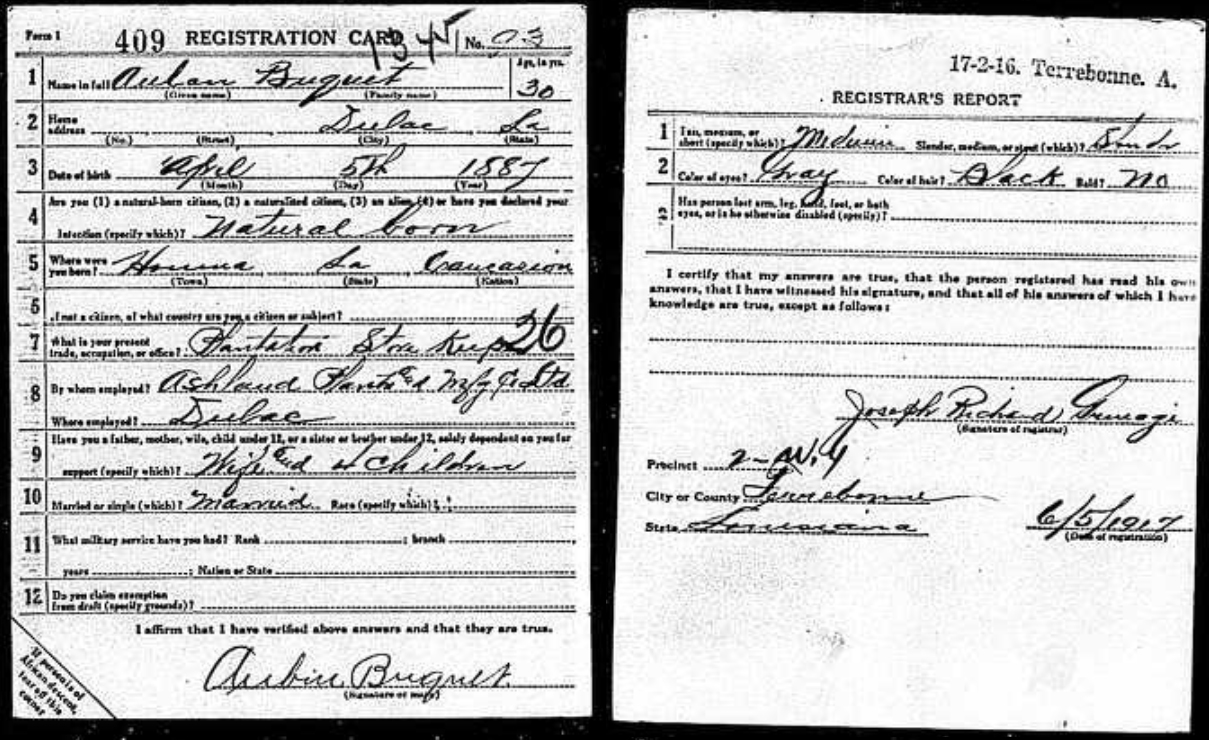 Form 1 409 REGISTRATION CARD 1345 No. 23
1 Name in full Auban Buquet Age, in yrs. 30
(Given name) (Family name)
2 Home address Dulac La
(No.) (Street) (City) (State)
3 Date of birth April 5th 1887
(Month) (Day) (Year)
4 Are you (1) a natural-born citizen, (2) a naturalized citizen, (3) an alien, (4) or have you declared your
intention (specify which)? Natural born
5 Where were you born? Houma La Craucasion
(Town) (State) (Nation)
6 If not a citizen, of what country are you a citizen or subject?
7 What is your present trade, occupation, or office? Plantation Store Keep 26
8 By whom employed? Ashland Plant & Mfg Co Ltd
Where employed? Dulac
9 Have you a father, mother, wife, child under 12, or a sister or brother under 12, solely dependent on you for
support (specify which)? Wife and Children
10 Married or single (which)? Married Race (specify which)?
11 What military service have you had? Rank ; branch
years ; Nation or State
12 Do you claim exemption from draft (specify grounds)?
I affirm that I have verified above answers and that they are true.
Aubin Buquet
(Signature or mark)
If person is of
African descent,
tear off this
corner
17-2-16. Terrebonne. A.
REGISTRAR'S REPORT
1 Tall, medium, or short (specify which)? Medium Slender, medium, or stout (which)?
2 Color of eyes? Gray Color of hair? Black Bald? No
3 Has person lost arm, leg, hand, foot, or both
eyes, or is he otherwise disabled (specify)?
I certify that my answers are true, that the person registered has read his own
answers, that I have witnessed his signature, and that all of his answers of which I have
knowledge are true, except as follows:
Joseph Richard
(Signature of registrar)
Precinct 2-W.4
City or County Terrebonne
State Louisiana 6/5/1917
(Date of registration)